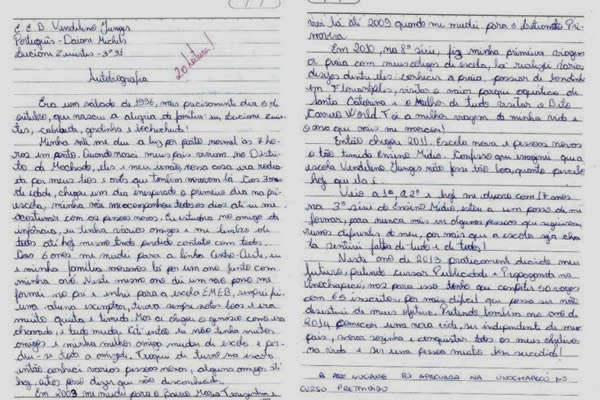 E. E. B. Vendelino Junges
Português - Daiani Michels
Lucioni Zuertes - 3º31
Autobiografia
Era um sábado de 1996, mais precisamente dia 5 de
outubro, que nasceu a alegria da família: eu, Lucioni
cabeluda, gordinha e bochechuda!
Minha mãe me deu a luz por parto normal às 7 ho-
ras em ponto. Quando nasci meus pais moravam no Distri-
to de Machado, eles e meu irmão, nossa casa era rodea-
da por meus tios e avós que também moravam lá. Com 3 anos
de idade, chegou um dia inesperado o primeiro dia na pré-
escola, minha mãe me acompanhou todos os dias até eu me
acostumar com as pessoas novas. Eu estudava no
infância, eu tinha vários amigos e me lembro de
todos até hoje mesmo tendo perdido contato com todos.
Aos 6 anos me mudei para a Linha Centro-Oeste, eu
e minha família moramos lá por um ano junto com
minha avó. Neste mesmo dei um não passo me
formei no pré e entrei para a escola EMEB, sempre fui
uma aluna exemplar, tirava sempre notas boas e era
muito quieta e tímida. Mas aí chegou o
chamado e tudo mudou. Até então eu não tinha muitos
amigos e minha melhor amiga mudou de escola e per-
deu-se toda a amizade. Troquei de turma na escola
então conheci várias pessoas novas, alguns amigos até
hoje, outros posso dizer que são desconhecidos.
Em 2003 me mudei para o Bairro Maria Terezinha e
vivi lá até 2009 quando me mudei para o Bairro Pri-
mavera.
Em 2010, na 8ª série, fiz minha primeira viagem
a praia com meus colegas de escola, lá realizei vários
desejos dentre eles: conhecer a praia, passear de bondinho
em Florianópolis, visitar o maior parque aquático de
Santa Catarina e o melhor de tudo visitar o Beto
Carrero World. Foi a melhor viagem da minha vida e
o ano que mais me marcou!
Então chegou 2011. Escola nova e pessoas novas
e o tão temido Ensino Médio. Confesso que imaginei que a
escola Vendelino Junges não fosse tão boa, quanto percebo
hoje que ela é.
Veio a 1ª, a 2ª e hoje me deparo com 17 anos
na 3ª série do Ensino Médio, estou a um passo de me
formar, para nunca mais ver algumas pessoas que seguiram
rumos diferentes do meu, por mais que a escola seja chata
sentirei falta de tudo e de todos!
Neste ano de 2013 praticamente decidi meu
futuro, pretendo cursar Publicidade e Propaganda na
Unochapecó, mas para isso tenho que competir 50 vagas
com 65 inscritos, por mais difícil que possa ser não
desistirei de meus objetivos. Pretendo também no ano de
2014 começar uma nova vida, ser independente de meus
pais, morar sozinha e conquistar todos os meus objetivos
na vida e ser uma pessoa muito bem sucedida!
FOI APROVADA NA UNOCHAPECÓ NO
CURSO PRETENDIDO